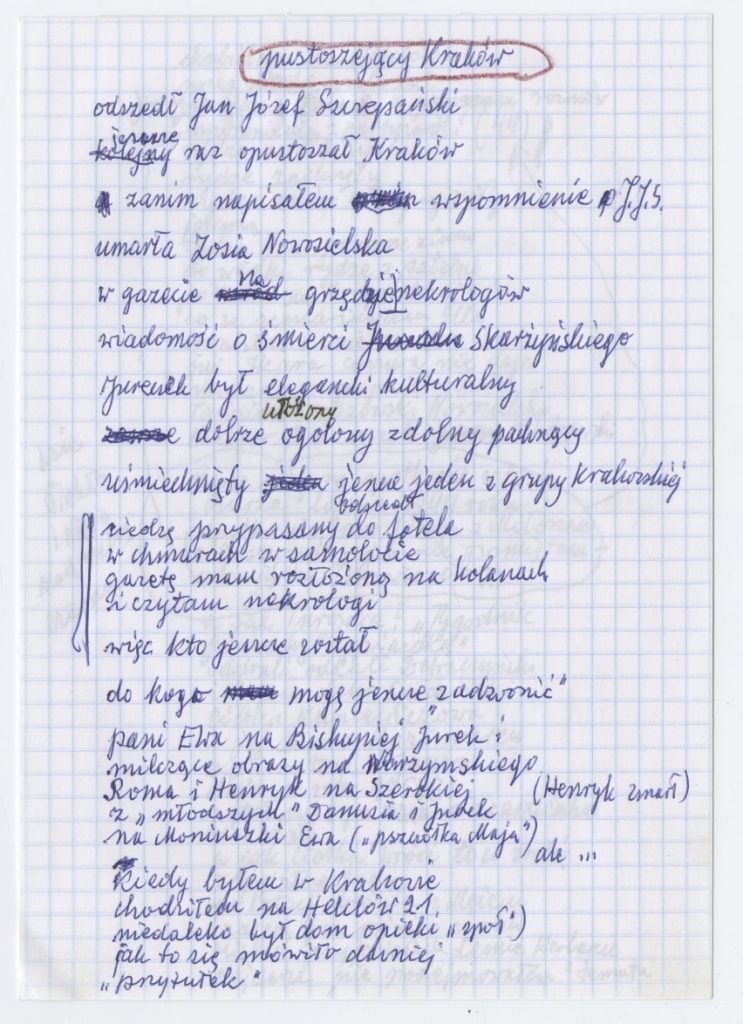 pustoszejący Kraków
odszedł Jan Józef Szczepański
jeszcze
kolejny raz opustoszał Kraków
zanim napisałem wspomnienie o J.J.S.
umarła Zosia Nowosielska
na
w gazecie grzędzie nekrologów
wiadomość o śmierci Jurka Skarżyńskiego
Jureczek był elegancki kulturalny
ułożony
dobrze ogolony zdolny pachnący
uśmiechnięty jeszcze jeden z grupy krakowskiej
odszedł
siedzę przypasany do fotela
w chmurach w samolocie
gazetę mam rozłożoną na kolanach
i czytam nekrologi
więc kto jeszcze został
do kogo mogę jeszcze "zadzwonić"
pani Ewa na Biskupiej Jurek i
milczące obrazy na
Roma i Henryk na Szerokiej (Henryk zmarł)
z "młodszych" Danusia i Jurek
na Moniuszki Ewa ("pszczółka Maja")
ale ...
kiedy byłem w Krakowie
chodziłem na Helclów 21
niedaleko był dom opieki "społ")
jak to się mówiło dawniej
"przytułek"